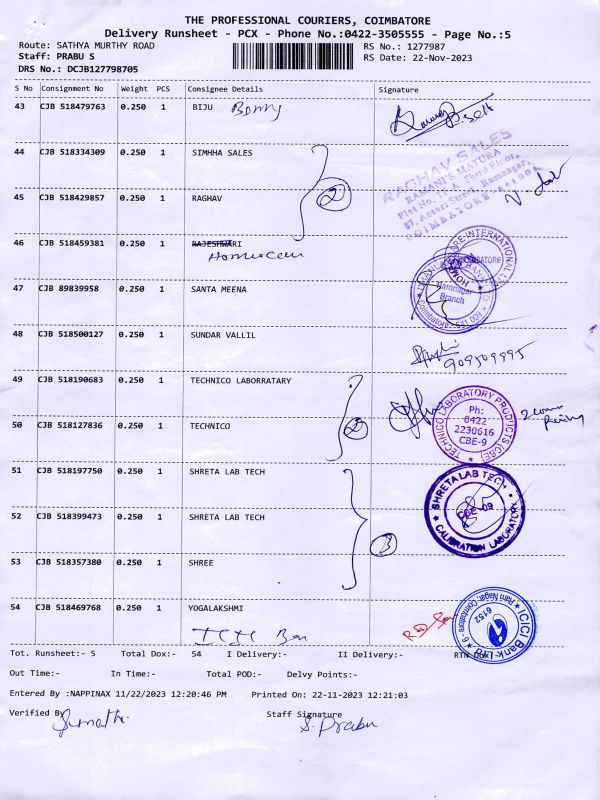 THE PROFESSIONAL COURIERS, COIMBATORE
Delivery Runsheet - PCX - Phone No.:0422-3505555 - Page No.:5
Route: SATHYA MURTHY ROAD
RS No.: 1277987
Staff: PRABU S
RS Date: 22-Nov-2023
DRS No.: DCJB127798705
S No Consignment No Weight PCS Consignee Details Signature
43 CJB 518479763 0.250 1 BIJU
44 CJB 518334309 0.250 1 SIMHHA SALES
RAGHAV SALES
2
45 CJB 518429857 0.250 1 RAGHAV
46 CJB 518459381 0.250 1 RAJESHWARI
47 CJB 89839958 0.250 1 SANTA MEENA
Ramnagar
Branch
48 CJB 518500127 0.250 1 SUNDAR VALLIL
49 CJB 518190683 0.250 1 TECHNICO LABORRATARY
TECHNICO LABORATORY PRODUCTS (CBE)
Ph:
0422
2230616
CBE-9
50 CJB 518127836 0.250 1 TECHNICO
2
51 CJB 518197750 0.250 1 SHRETA LAB TECH
SHRETA LAB TECH
CBE-09
CALIBRATION LABORATORY
52 CJB 518399473 0.250 1 SHRETA LAB TECH
3
53 CJB 518357380 0.250 1 SHREE
54 CJB 518469768 0.250 1 YOGALAKSHMI
ICICI Bank Ltd
6152
Tot. Runsheet:- S Total Dox:- 54 I Delivery:- II Delivery:- RTN DOX:
Out Time:- In Time:- Total POD:- Delvy Points:-
Entered By :NAPPINAX 11/22/2023 12:20:46 PM Printed On: 22-11-2023 12:21:03
Verified By Staff Signature
S. Prabu